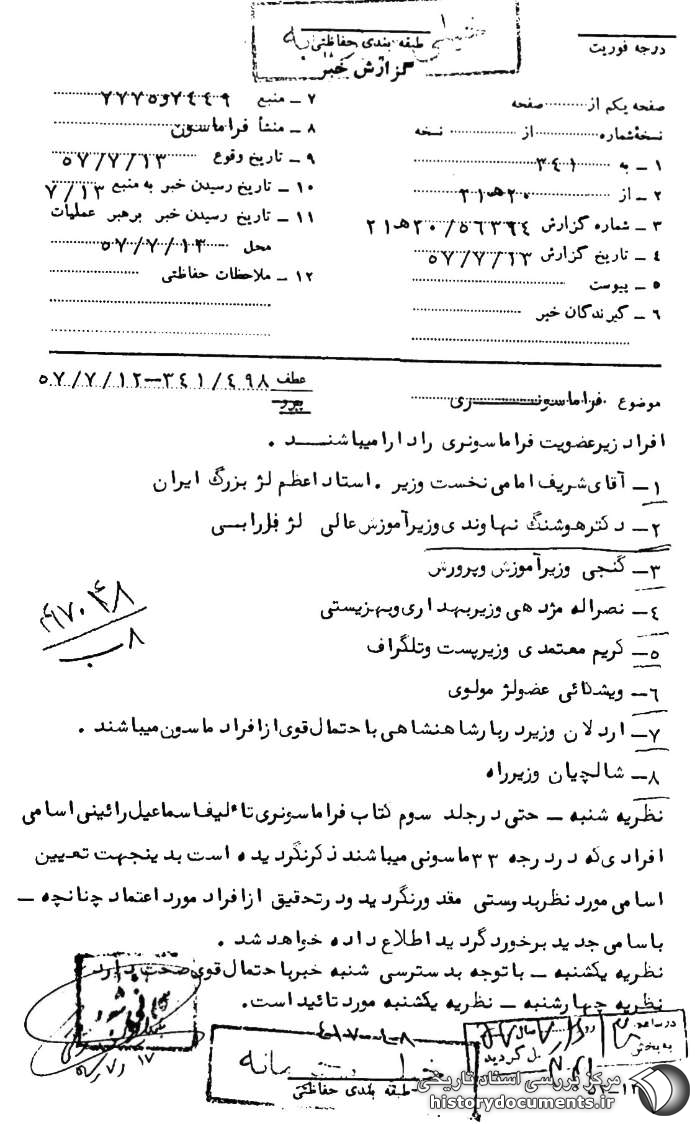 طبقه بندی حفاظتی
گزارش خبر
درجه فوریت
صفحه یکم از ........ صفحه
نسخهٔ شماره ........ از ........ نسخه
۱ ـ به ۳۴۱
۲ ـ از ۲۰هـ۲۱
۳ ـ شماره گزارش ۲۰/۵۶۳۹۴هـ۲۱
۴ ـ تاریخ گزارش ۵۷/۷/۱۳
۵ ـ پیوست
۶ ـ گیرندگان خبر
۷ ـ منبع ۷۷۷۵و۷۴۴۹
۸ ـ منشأ فراماسون
۹ ـ تاریخ وقوع ۵۷/۷/۱۳
۱۰ ـ تاریخ رسیدن خبر به منبع ۷/۱۳
۱۱ ـ تاریخ رسیدن خبر برهبر عملیات
محل ۵۷/۷/۱۳
۱۲ ـ ملاحظات حفاظتی
موضوع فراماسونـــری
عطف ۳۴۱/۴۹۸ ـ ۵۷/۷/۱۲
پیرو
افراد زیرعضویت فراماسونری را دارامیباشنـــد .
۱ـ آقای شریف امامی نخست وزیر . استاد اعظم لژ بزرگ ایران
۲ـ دکترهوشنگ نهاوندی وزیرآموزش عالی لژ فارابی
۳ـ گنجی وزیرآموزش وپرورش
۴ـ نصراله مژدهی وزیربهداری وبهزیستی
۵ـ کریم معتمدی وزیرپست وتلگراف
۶ـ ویشکائی عضولژ مولوی
۷ـ اردلان وزیردربارشاهنشاهی با حتمال قوی ازافراد ماسون میباشند .
۸ـ شالچیان وزیرراه
نظریه شنبه ـ حتی درجلد سوم کتاب فراماسونری تاٴلیف اسماعیل رائینی اسامی
افرادی که دردرجه ۳۳ ماسونی میباشند ذکرنگردیده است بدینجهت تعیین
اسامی مورد نظربدرستی مقدورنگردید ودرتحقیق ازافراد مورد اعتماد چنانچه ـ
باسامی جدید برخورد گردید اطلاع داده خواهد شد .
نظریه یکشنبه ـ با توجه بدسترسی شنبه خبربا حتمال قوی صحت دارد
نظریه چهارشنبه ـ نظریه یکشنبه مورد تائید است.
۸ـ۱ـ۷ـ۴
طبقه بندی حفاظتی
مرکز بررسی اسناد تاریخی
historydocuments.ir